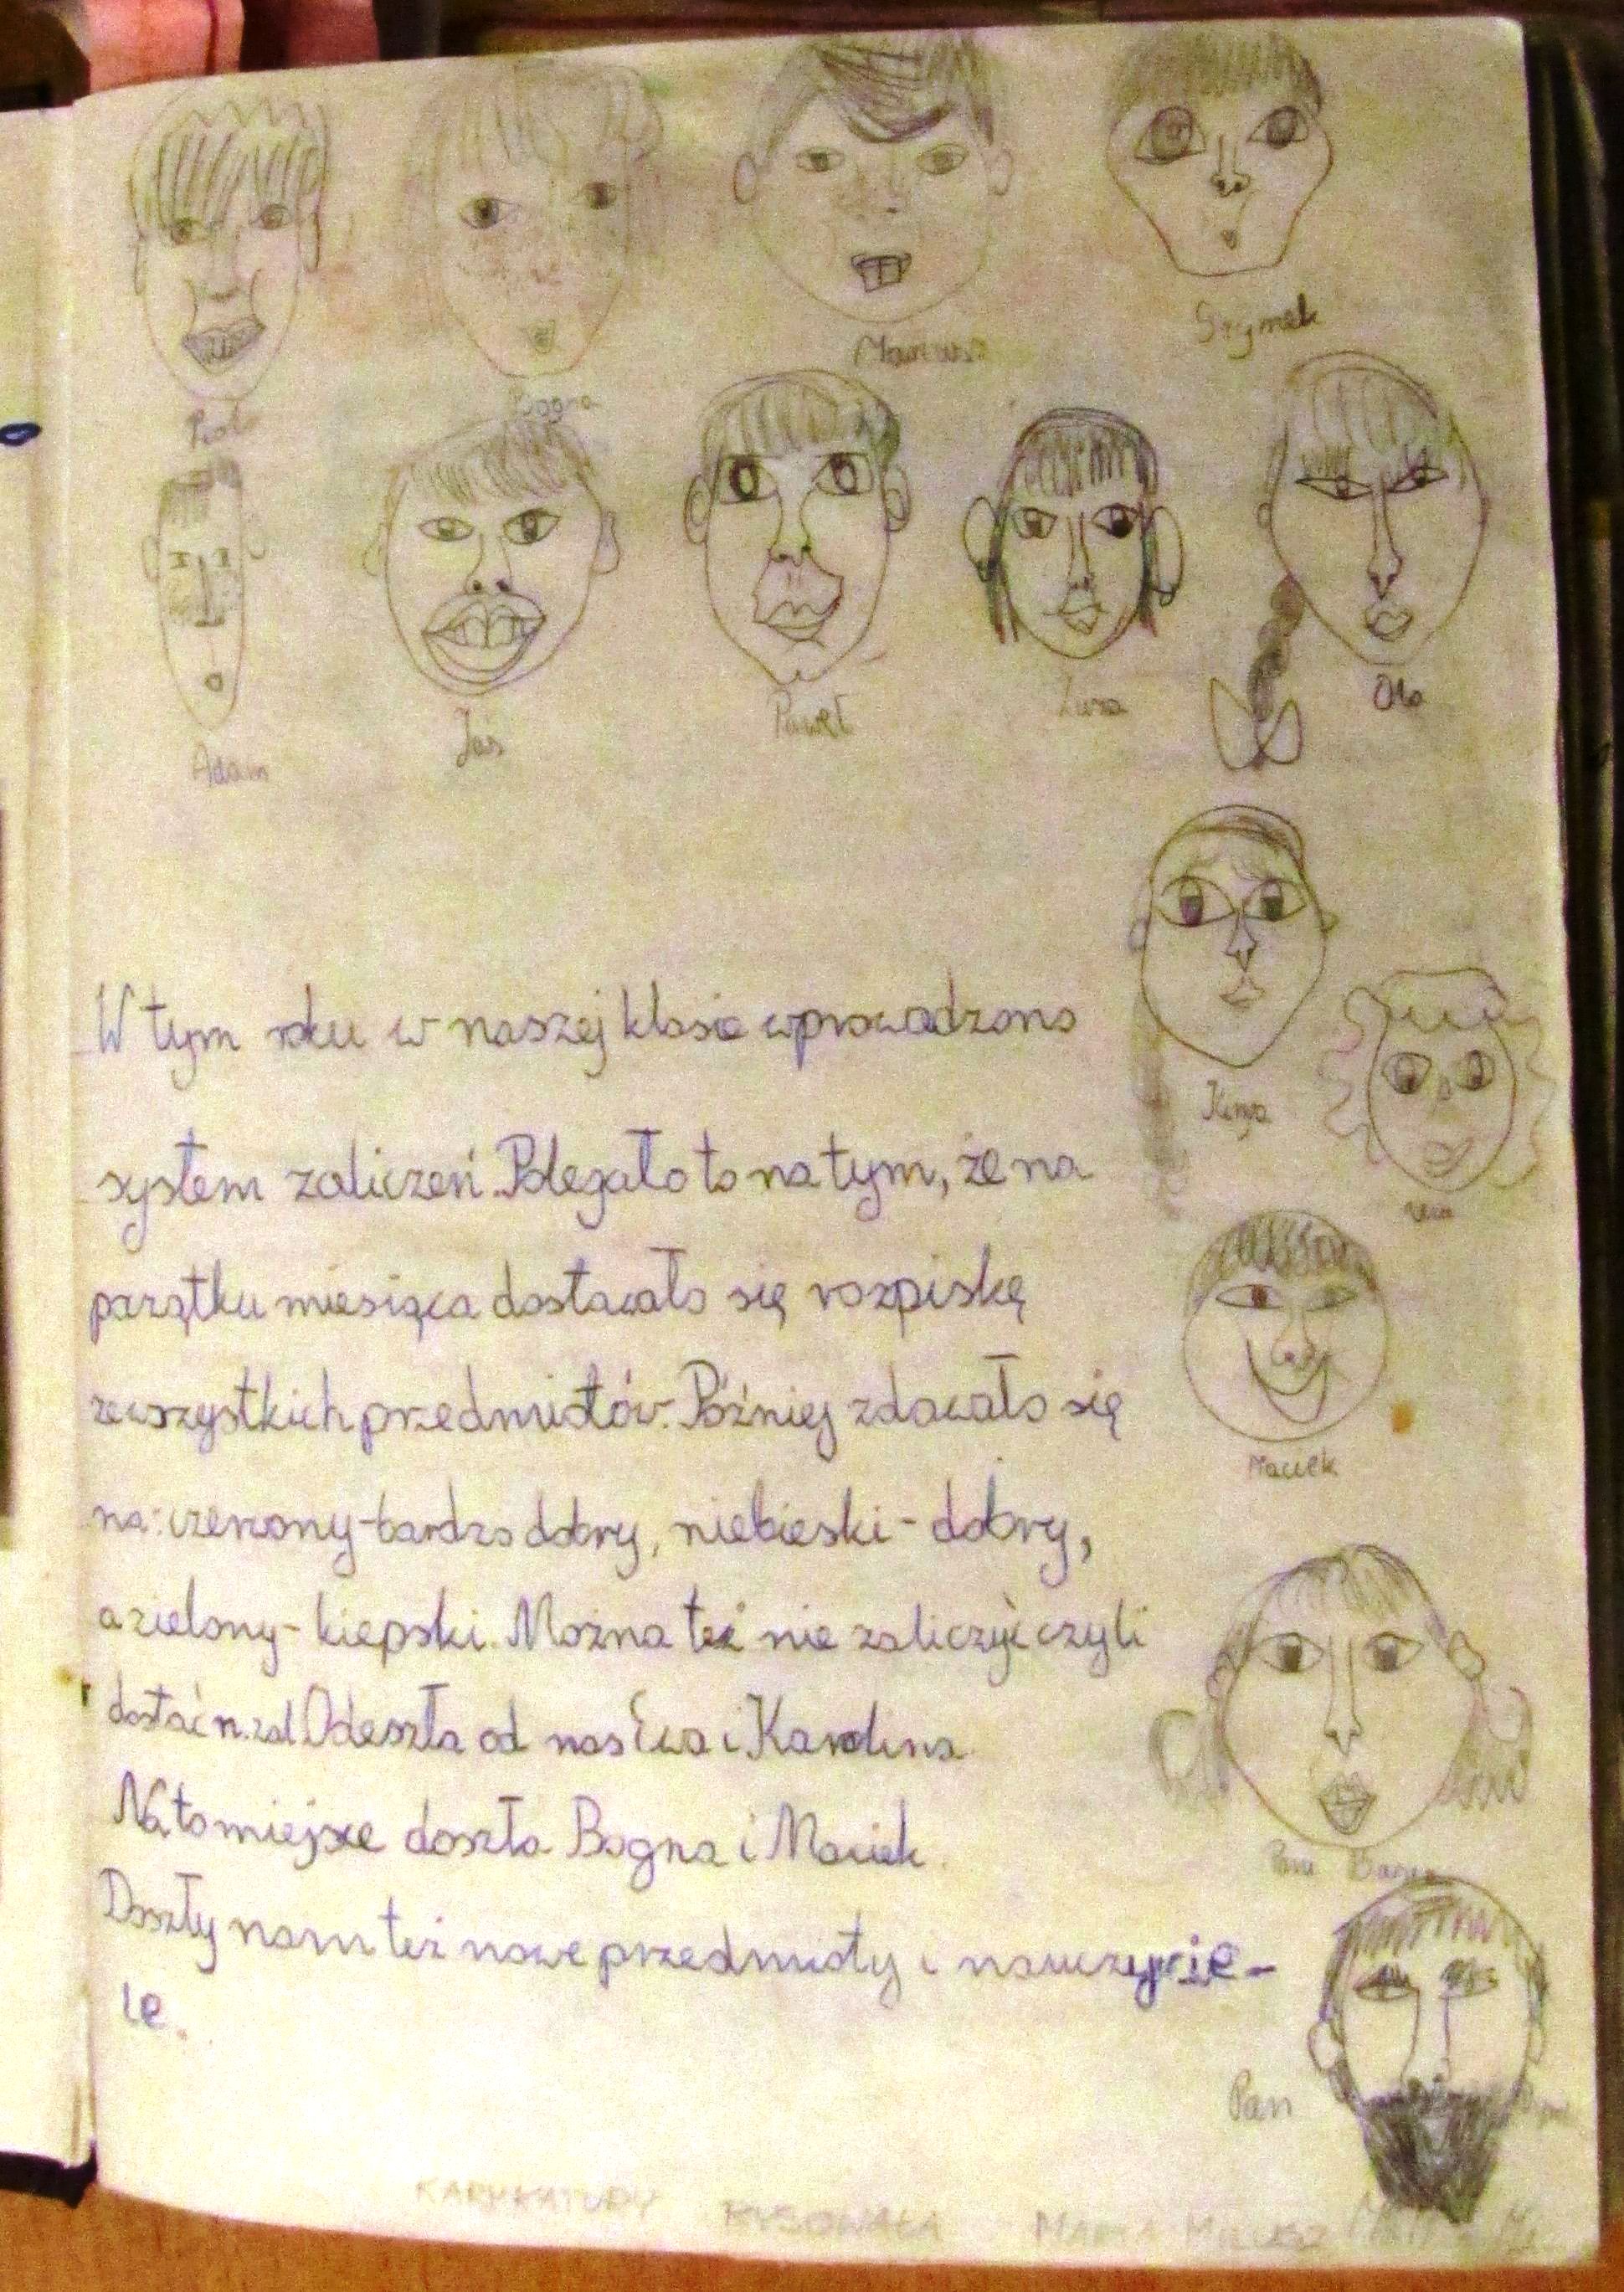 Mariusz
Szymek
Piotr
Bogna
Adam
Jaś
Paweł
Zuza
Ola
Kinga
W tym roku w naszej klasie wprowadzono
system zaliczeń. Polegało to na tym, że na
początku miesiąca dostawało się rozpiskę
ze wszystkich przedmiotów. Później zdawało się
na: czerwony - bardzo dobry, niebieski - dobry,
a zielony - kiepski. Można też nie zaliczyć czyli
dostać n.zal Odeszła od nas Ewa i Karolina.
Na to miejsce doszła Bogna i Maciek.
Doszły nam też nowe przedmioty i nauczycie-
le.
Maciek
Pani
Pan
KARYKATURY RYSOWAŁA MARTA